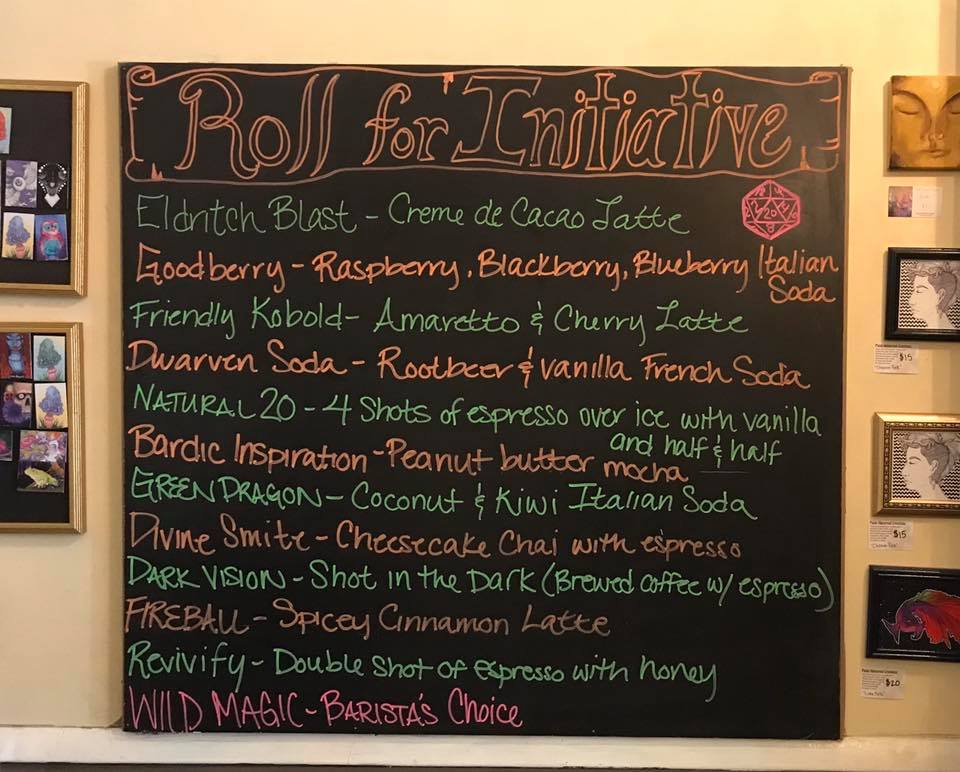 Roll for Initiative
Eldritch Blast - Creme de Cacao Latte
Goodberry - Raspberry, Blackberry, Blueberry Italian
Soda
Friendly Kobold - Amaretto & Cherry Latte
Dwarven Soda - Rootbeer & Vanilla French Soda
NATURAL 20 - 4 Shots of espresso over ice with vanilla
and half & half
Bardic Inspiration - Peanut butter mocha
GREEN DRAGON - Coconut & Kiwi Italian Soda
Divine Smite - Cheesecake Chai with espresso
DARK VISION - Shot in the Dark (Brewed coffee w/ espresso)
FIREBALL - Spicey Cinnamon Latte
Revivify - Double Shot of Espresso with honey
WILD MAGIC - BARISTA'S Choice
20
$15
$15
$20